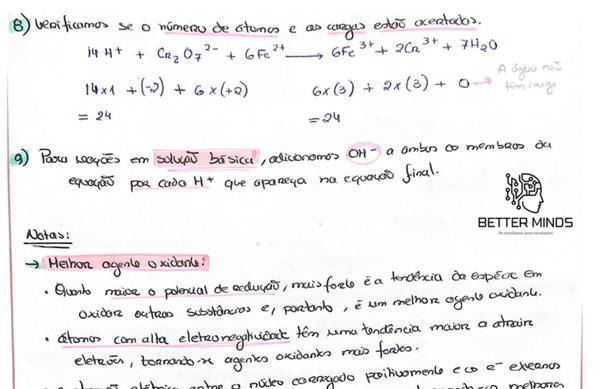 8) Verificamos se o número de átomos e as cargas estão acertadas.
14 H+ + Cr2O7 2- + 6Fe2+ → 6Fe3+ + 2Cr3+ + 7H2O
14x1 + (-2) + 6 x (+2) 6x(3) + 2x(3) + 0 → A água não
têm carga
= 24 = 24
9) Para reações em solução básica, adicionamos OH- a ambos os membros da
equação por cada H+ que apareça na equação final.
BETTER MINDS
De estudantes para estudantes
Notas:
→ Melhor agente oxidante:
• Quanto maior o potencial de redução, mais forte é a tendência da espécie em
oxidar outras substâncias e, portanto, é um melhor agente oxidante.
• átomos com alta eletronegatividade têm uma tendência maior a atrair
eletrões, tornando-se agentes oxidantes mais fortes.
entre o núcleo carregado positivamente e os e- externos